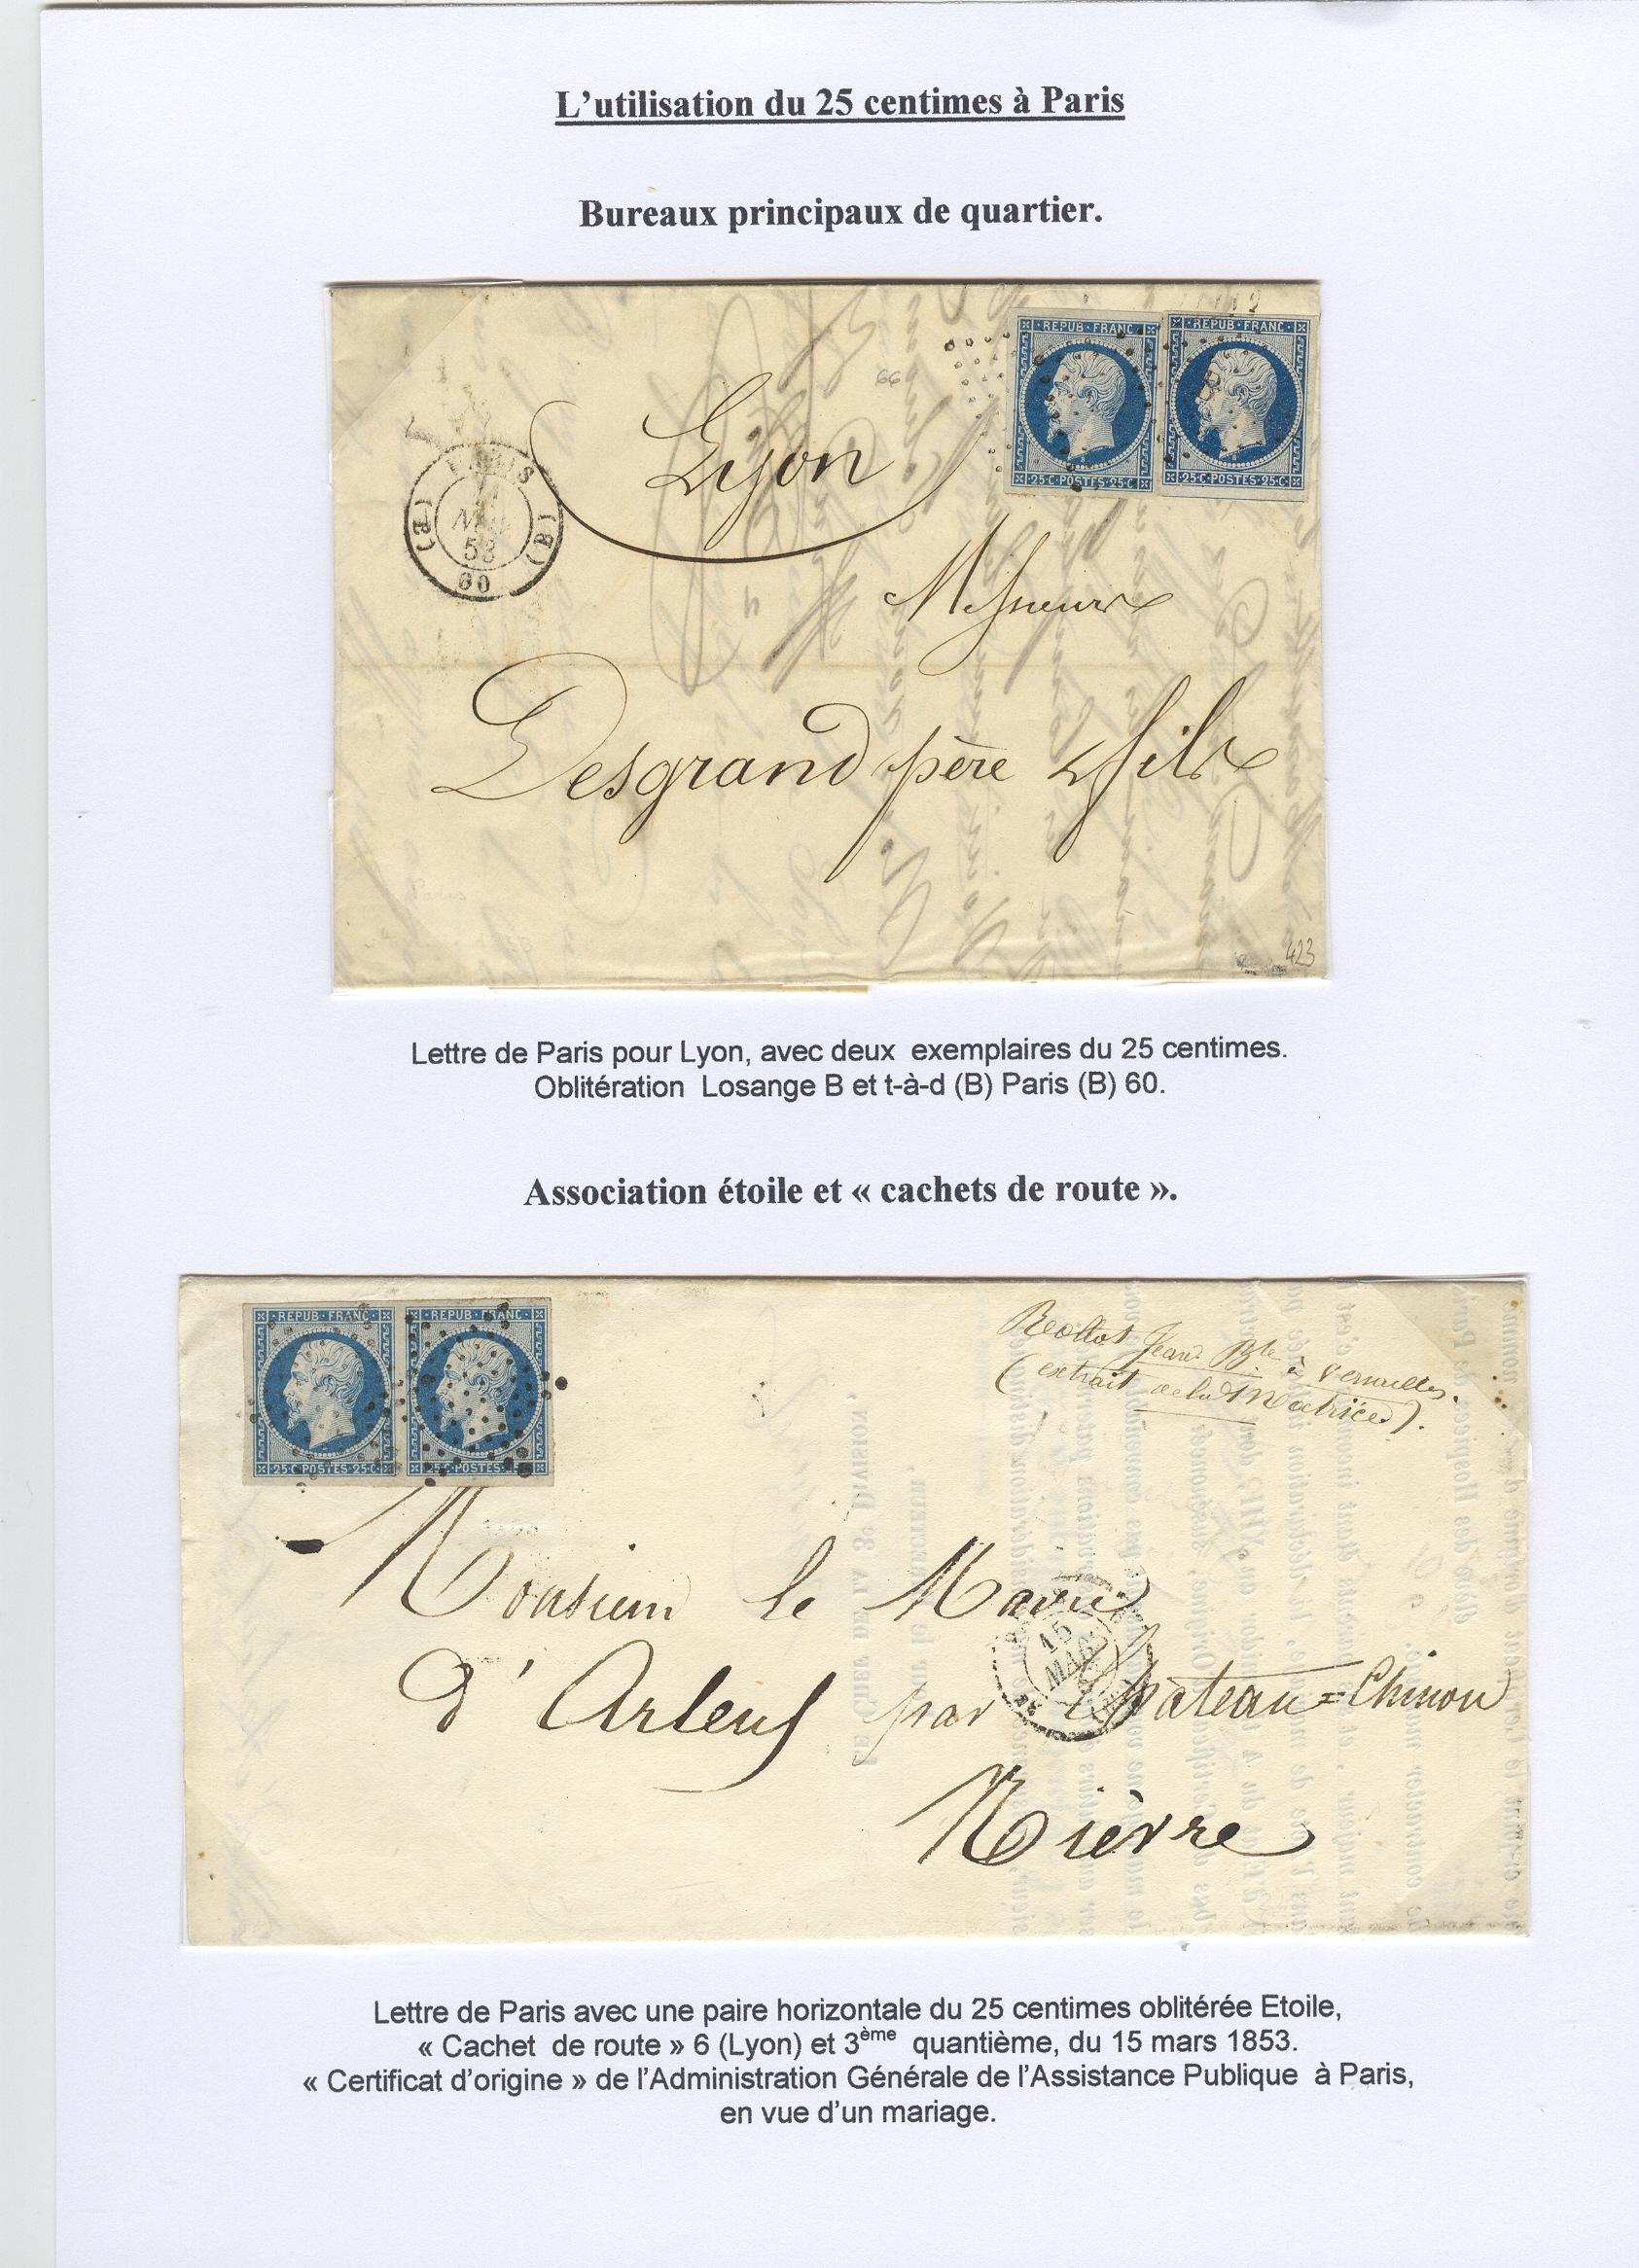 L'utilisation du 25 centimes à Paris
Bureaux principaux de quartier.
REPUB·FRANC· REPUB·FRANC·
66
Lyon
25·C·POSTES·25·C· 25·C·POSTES·25·C·
PARIS
(B) (B)
53
60
Messieurs
Desgrand père & fils
423
Lettre de Paris pour Lyon, avec deux exemplaires du 25 centimes.
Oblitération Losange B et t-à-d (B) Paris (B) 60.
Association étoile et « cachets de route ».
REPUB·FRANC· REPUB·FRANC·
Jean Bte à
(extrait de la Matrice).
25·C·POSTES·25·C· 25·C·POSTES·25·C·
Monsieur le Maire
15
MARS
d'Arleuf par Château=Chinon
Nièvre
Lettre de Paris avec une paire horizontale du 25 centimes oblitérée Etoile,
« Cachet de route » 6 (Lyon) et 3ème quantième, du 15 mars 1853.
« Certificat d'origine » de l'Administration Générale de l'Assistance Publique à Paris,
en vue d'un mariage.